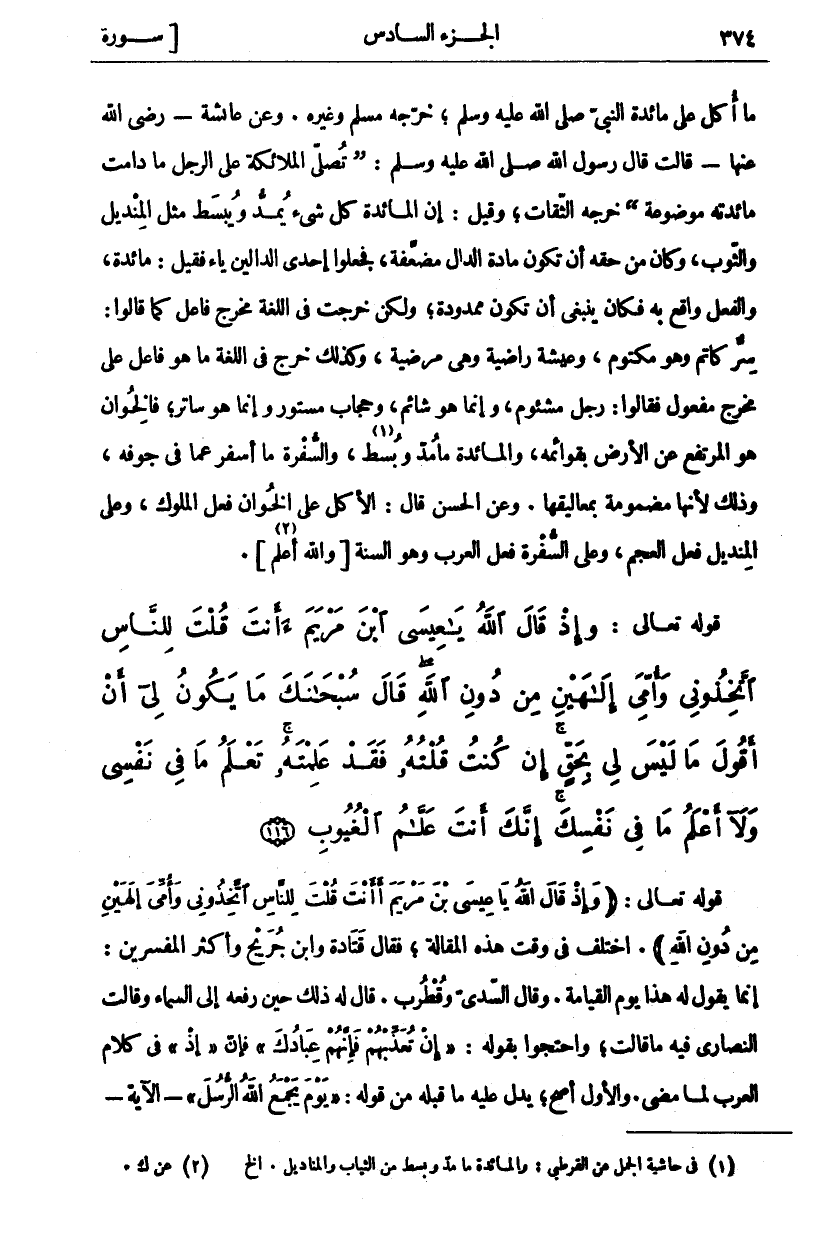 ٣٧٤ الجـــزء السـادس [ ســـورة
ما أُكل على مائدة النبىّ صلى الله عليه وسلم ؛ خرّجه مسلم وغيره . وعن عائشة — رضى الله
عنها — قالت قال رسول الله صلى الله عليه وسلم : ” تُصلّى الملائكة على الرجل ما دامت
مائدته موضوعة “ خرجه الثقات ؛ وقيل : إن المائدة كل شىء يُمدُّ ويُبسَط مثل المِنْديل
والثّوب ، وكان من حقه أن تكون مادة الدال مضعَّفة ، فجعلوا إحدى الدالين ياء فقيل : مائدة ،
والفعل واقع به فكان ينبغى أن تكون ممدودة ؛ ولكن خرجت فى اللغة مخرج فاعل كما قالوا :
سِرٌّ كاتم وهو مكتوم ، وعيشة راضية وهى مرضية ، وكذلك خرج فى اللغة ما هو فاعل على
مخرج مفعول فقالوا : رجل مشئوم ، وإنما هو شائم ، وحجاب مستور وإنما هو ساتر ؛ فالخُوان
هو المرتفع عن الأرض بقوائمه ، والمائدة مامُدّ وبُسط (١) ، والسُّفْرة ما أسفر عما فى جوفه ،
وذلك لأنها مضمومة بمعاليقها . وعن الحسن قال : الأكل على الخُوان فعل الملوك ، وعلى
المِنديل فعل العجم ، وعلى السُّفْرة فعل العرب وهو السنة [ والله أعلم (٢) ] .
قوله تعـالى : وَإِذْ قَالَ ٱللَّهُ يَـٰعِيسَى ٱبْنَ مَرْيَمَ ءَأَنتَ قُلْتَ لِلنَّاسِ
ٱتَّخِذُونِى وَأُمِّىَ إِلَـٰهَيْنِ مِن دُونِ ٱللَّهِ ۖ قَالَ سُبْحَـٰنَكَ مَا يَكُونُ لِىٓ أَنْ
أَقُولَ مَا لَيْسَ لِى بِحَقٍّ ۚ إِن كُنتُ قُلْتُهُۥ فَقَدْ عَلِمْتَهُۥ ۚ تَعْلَمُ مَا فِى نَفْسِى
وَلَآ أَعْلَمُ مَا فِى نَفْسِكَ ۚ إِنَّكَ أَنتَ عَلَّـٰمُ ٱلْغُيُوبِ ﴿١١٦﴾
قوله تعـالى : ﴿ وَإِذْ قَالَ اللهُ يَا عِيسَى بْنَ مَرْيَمَ أَأَنْتَ قُلْتَ لِلنَّاسِ ٱتَّخِذُونِى وَأُمِّىَ إِلَهَيْنِ
مِن دُونِ اللهِ ﴾ . اختلف فى وقت هذه المقالة ؛ فقال قَتَادة وابن جُرَيْج وأكثر المفسرين :
إنما يقول له هذا يوم القيامة . وقال السّدىّ وقُطْرب . قال له ذلك حين رفعه إلى السماء وقالت
النصارى فيه ماقالت ؛ واحتجوا بقوله : « إِنْ تُعَذِّبْهُمْ فَإِنَّهُمْ عِبَادُكَ » فإنّ « إذْ » فى كلام
العرب لما مضى . والأول أصح ؛ يدل عليه ما قبله من قوله : « يَوْمَ يَجْمَعُ اللهُ الرُّسُلَ » — الآية —
(١) فى حاشية الجمل عن القرطبى : والمائدة ما مدّ وبسط من الثياب والمناديل . الخ (٢) عن ك .